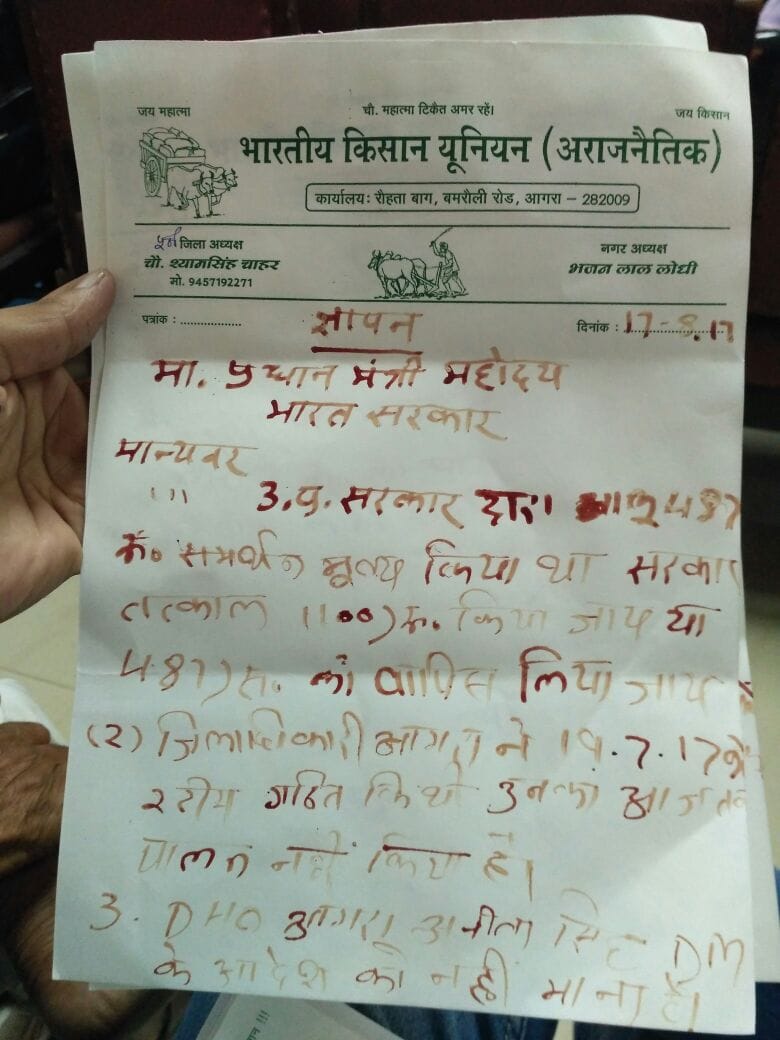 जय महात्मा
चौ. महात्मा टिकैत अमर रहें।
जय किसान
भारतीय किसान यूनियन (अराजनैतिक)
कार्यालयः रौहता बाग, बमरौली रोड, आगरा – 282009
पूर्व जिला अध्यक्ष
चौ. श्यामसिंह चाहर
मो. 9457192271
नगर अध्यक्ष
भजन लाल लोधी
पत्रांक : ...................
दिनांक : 17-8.17
ज्ञापन
मा. प्रधान मंत्री महोदय
भारत सरकार
मान्यवर
(1) उ.प्र. सरकार द्वारा 487
रू. समर्थन मूल्य किया था सरकार
तत्काल 1100) रू. किया जाय या
487) रू. को वापिस लिया जाय
(2) जिलाधिकारी आगरा ने 19.7.17 को
2 टीम गठित किथी उनका आज तक
पालन नहीं किया है।
3. DHO आगरा अनीता सिंह DM
के आदेश को नही माना है।